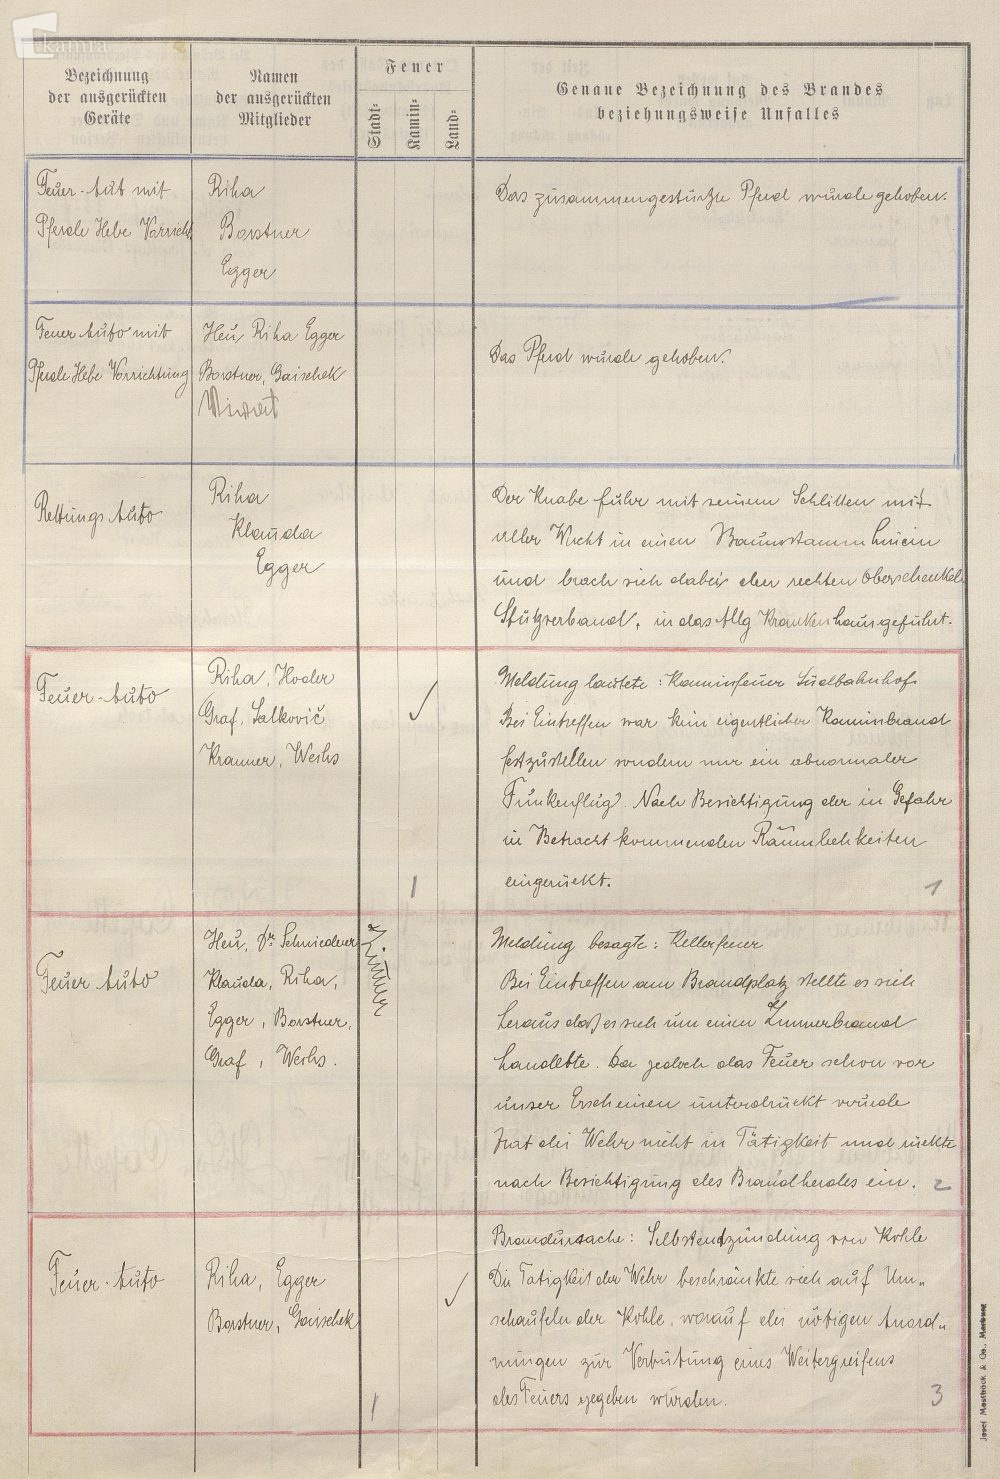 kamra
Bezeichnung
der ausgerückten
Geräte
Namen
der ausgerückten
Mitglieder
Feuer
Stadt-
Kamin-
Land-
Genaue Bezeichnung des Brandes
beziehungsweise Unfalles
Feuer-Aut mit
Pferde Hebe Vorricht.
Riha
Borstner
Egger
Das zusammengestürzte Pferd wurde gehoben.
Feuer Auto mit
Pferde Hebe Vorrichtung
Heu, Riha Egger
Borstner, Gaischek
Das Pferd wurde gehoben.
Rettungs Auto
Riha
Klauda
Egger
Der Knabe fuhr mit seinem Schlitten mit
aller Wucht in einen Baumstamm hinein
und brach sich dabei den rechten Oberschenkel.
Stützverband, in das Allg Krankenhaus geführt.
Feuer-Auto
Riha, Hoder
Graf, Salkovič
Kranner, Weihs
✓
1
Meldung lautete: Kaminfeuer Südbahnhof.
Bei Eintreffen war kein eigentlicher Kaminbrand
festzustellen sondern nur ein abnormaler
Funkenflug. Nach Besichtigung der in Gefahr
in Betracht kommenden Räumlichkeiten
eingerückt.
1
Feuer Auto
Heu, Dr. Schmiederer
Klauda, Riha,
Egger, Borstner,
Graf, Weihs.
Zimmer
Meldung besagte: Kellerfeuer
Bei Eintreffen am Brandplatz stellte es sich
heraus daß es sich um einen Zimmerbrand
handelte. Da jedoch das Feuer schon vor
unser Erscheinen unterdrückt wurde
trat die Wehr nicht in Tätigkeit und rückte
nach Besichtigung des Brandherdes ein.
2
Feuer-Auto
Riha, Egger
Borstner, Gaischek
1
✓
Brandursache: Selbstentzündung von Kohle
Die Tätigkeit der Wehr beschränkte sich auf Um„
schaufeln der Kohle, worauf die nötigen Anord„
nungen zur Verhütung eines Weitergreifens
des Feuers gegeben wurden.
3
Josef Mastböck & Co.